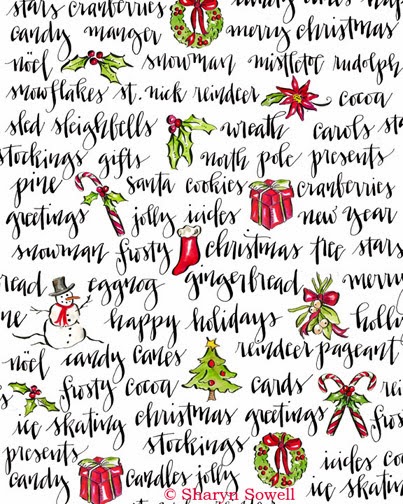 stars cranberries candy canes
candy manger merry christmas
nöel snowman mistletoe rudolph
snowflakes st. nick reindeer cocoa
sled sleighbells wreath carols sta
stockings gifts north pole presents
pine santa cookies cranberries
greetings jolly icicles new year
snowman frosty christmas tree stars
read eggnog gingerbread merry
ne happy holidays holly
nöel candy canes reindeer pageant
s frosty cocoa cards rei
ice skating christmas greetings fros
presents stockings icicles co
candy candles jolly ice skating
© Sharyn Sowell